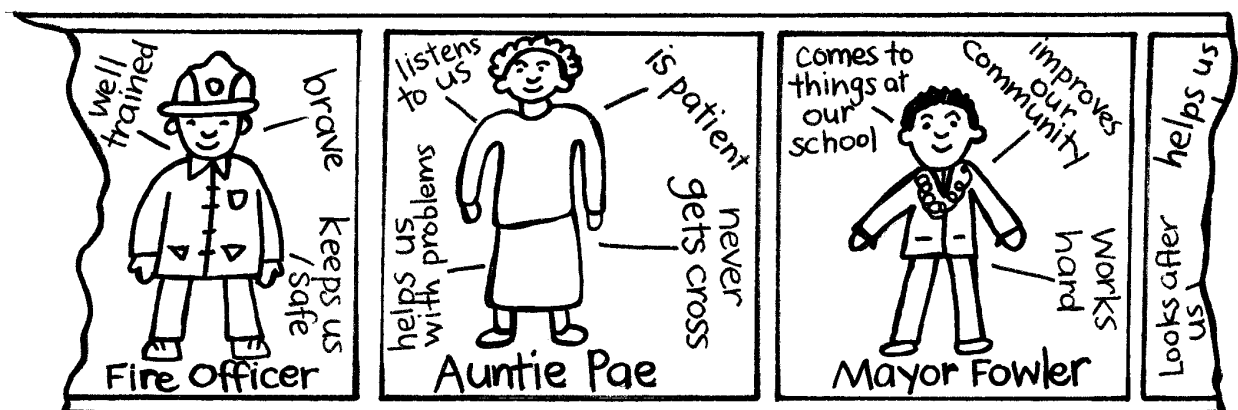 well
trained
brave
keeps us
safe
Fire Officer
listens
to us
is patient
helps us
with problems
never
gets cross
Auntie Pae
comes to
things at
our
school
improves
our
community
works
hard
Mayor Fowler
helps us
Looks after
us